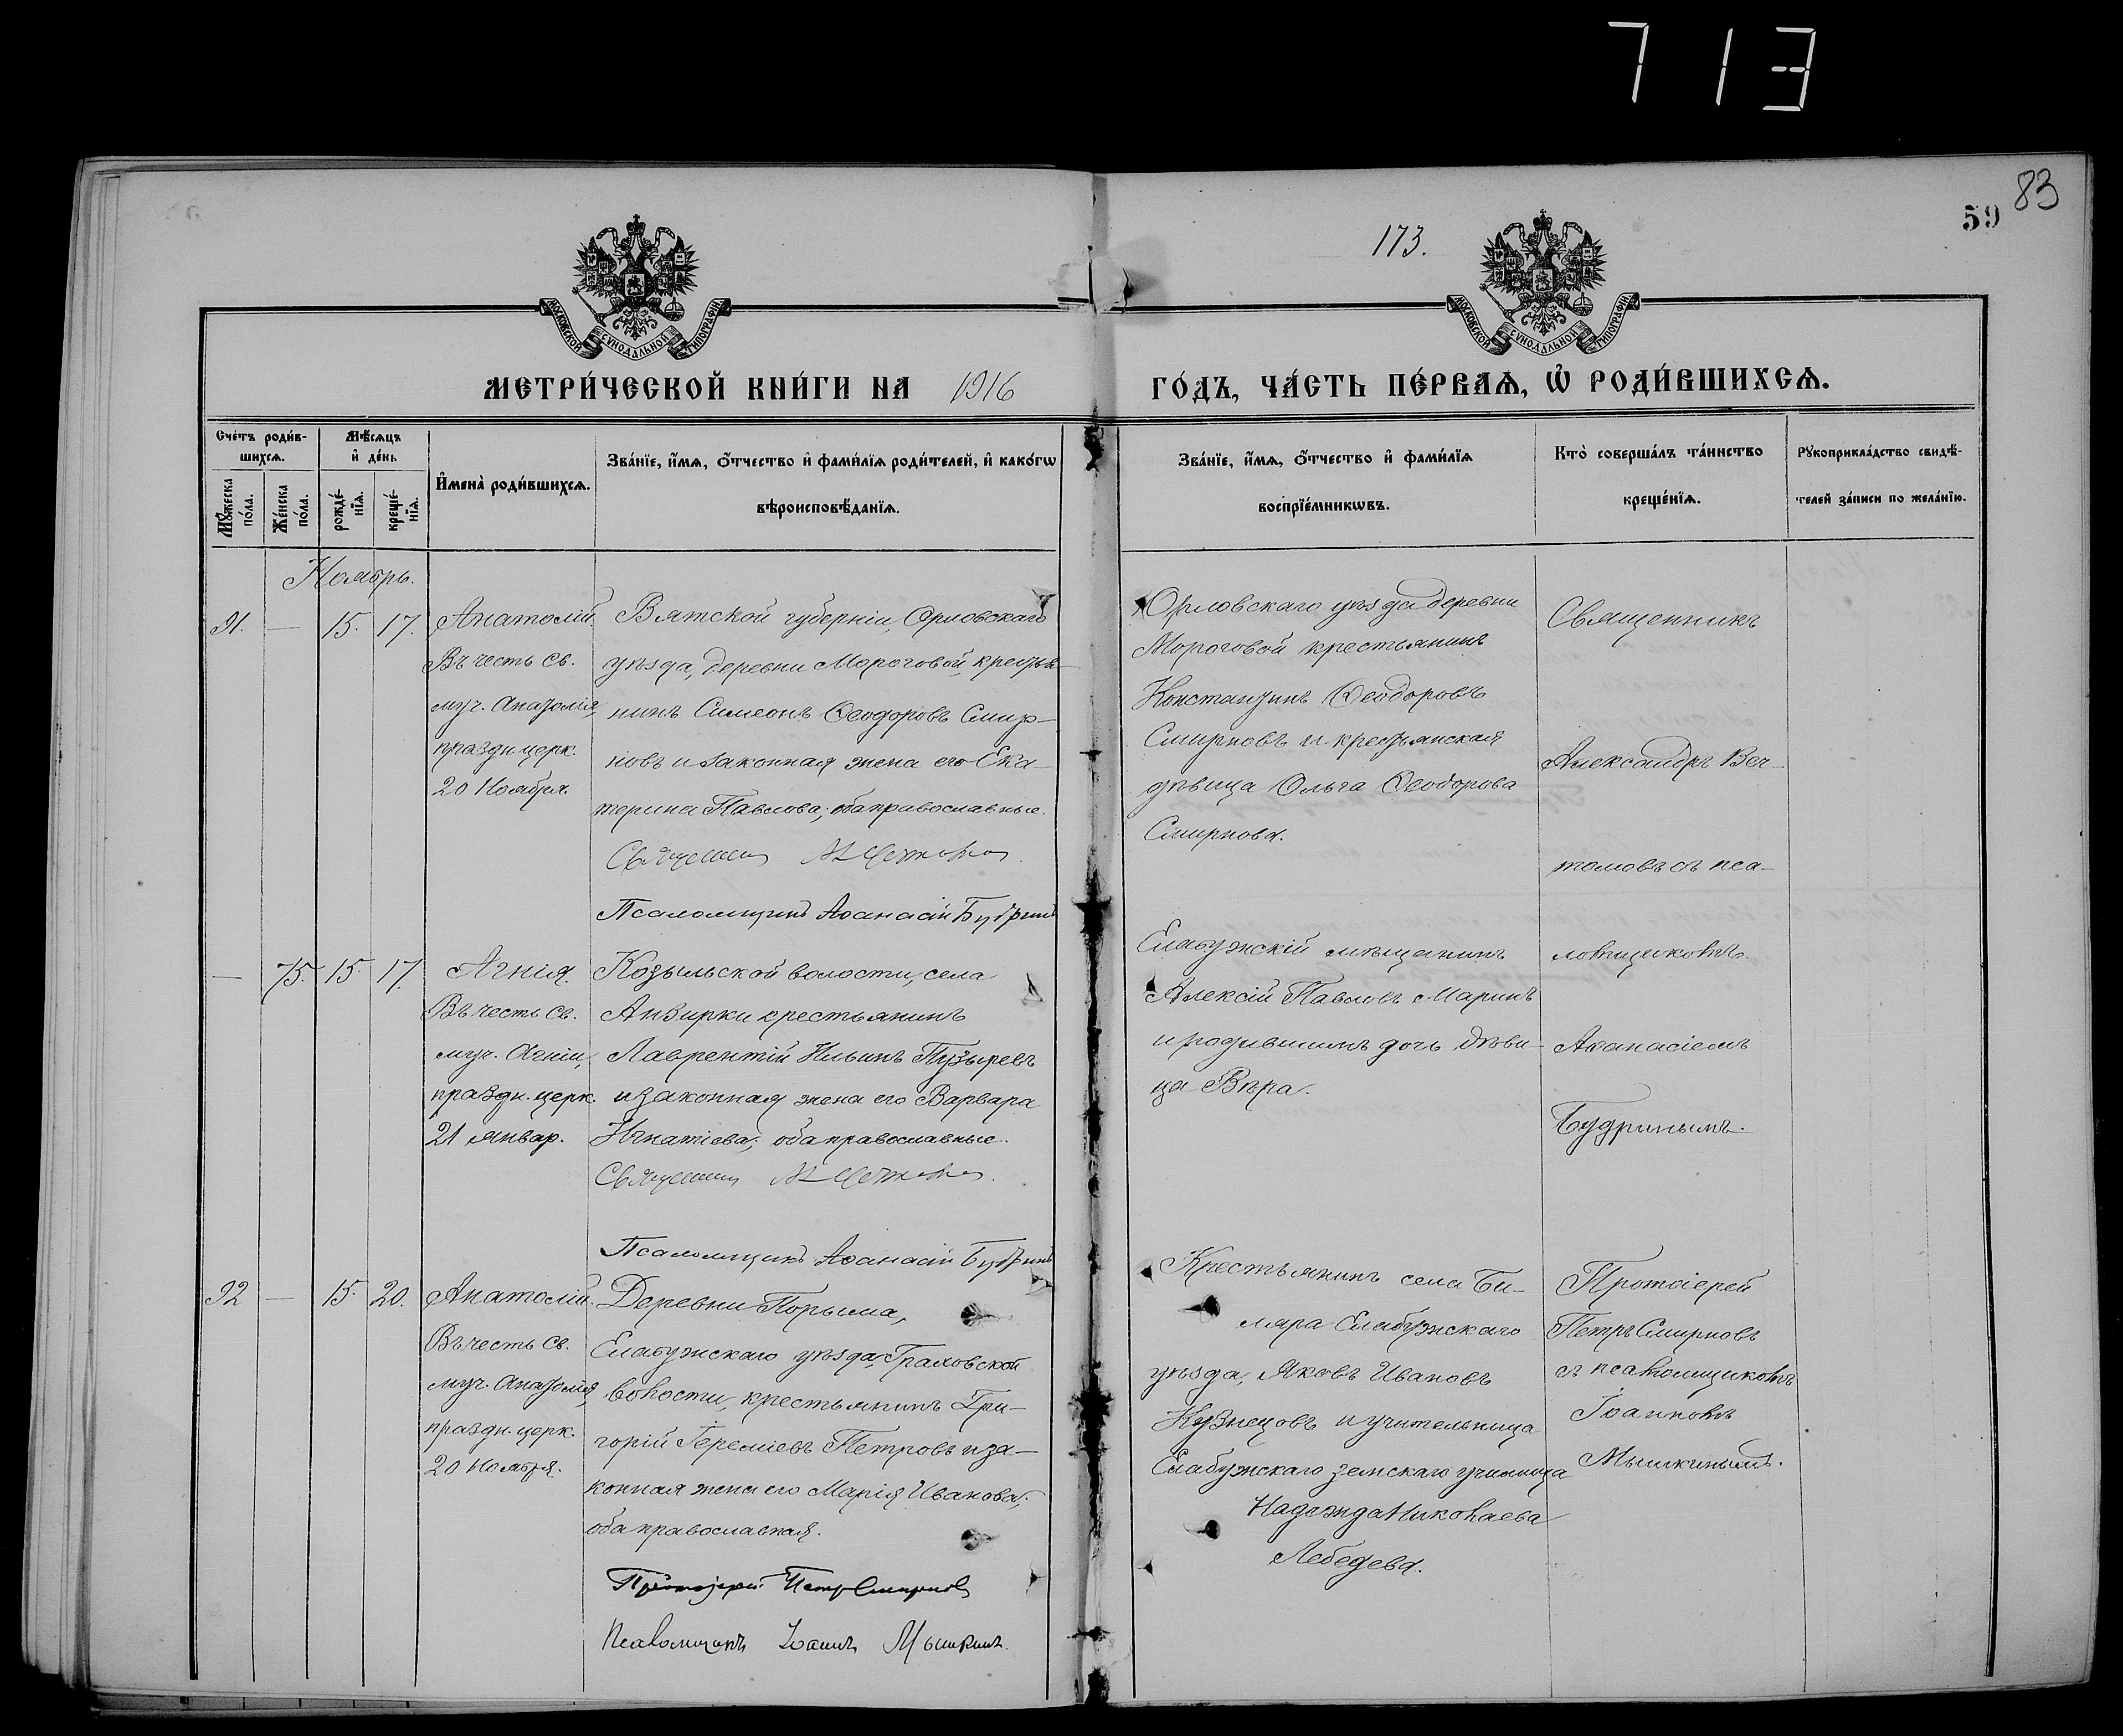 713
83
59
173.
МОСКОВСКОЙ СѴНОДАЛЬНОЙ ТИПОГРАФІИ
МОСКОВСКОЙ СѴНОДАЛЬНОЙ ТИПОГРАФІИ
МЕТРИ́ЧЕСКОЙ КНИ́ГИ НА 1916 ГО́ДЪ, ЧА́СТЬ ПЕ́РВАѦ, Ѡ҆ РОДИ́ВШИХСѦ.
Сче́тъ роди́в-
шихсѧ.
Мꙋ́жеска по́ла.
Же́нска по́ла.
Мѣ́сѧцъ
и҆ де́нь
рожде́-
нїѧ.
креще́-
нїѧ.
И҆мена̀ роди́вшихсѧ.
Зва́нїе, и҆́мѧ, ѻ҆́тчество и҆ фами́лїѧ роди́телей, и҆ како́гѡ
вѣроисповѣ́данїѧ.
Зва́нїе, и҆́мѧ, ѻ҆́тчество и҆ фами́лїѧ
воспрїе́мникѡвъ.
Кто̀ соверша́лъ та́инство
креще́нїѧ.
Рꙋкоприкла́дство свидѣ́-
телей за́писи по жела́нїю.
Ноябрь.
91. — 15. 17.
Анатолій.
Въ честь св.
муч. Анатолія,
праздн. церк.
20 Ноября.
Вятской губерніи, Орловскаго
уѣзда, деревни Мороговой, крестья-
нинъ Симеонъ Ѳеодоровъ Смир-
новъ и законная жена его Ека-
терина Павлова; оба православные.
Священникъ
Псаломщикъ Аѳанасій Будринъ
Орловскаго уѣзда деревни
Мороговой крестьянинъ
Константинъ Ѳеодоровъ
Смирновъ и крестьянская
дѣвица Ольга Ѳеодорова
Смирнова.
Священникъ
Александръ Веч-
томовъ съ пса-
ломщикомъ
Аѳанасіемъ
Будринымъ.
— 75. 15. 17.
Агнія.
Въ честь св.
муч. Агніи,
праздн. церк.
21 январ.
Козыльской волости, села
Анзирки крестьянинъ
Лаврентій Ильинъ Пузыревъ
и законная жена его Варвара
Игнатіева; оба православные.
Священникъ
Псаломщикъ Аѳанасій Будринъ
Елабужскій мѣщанинъ
Алексій Павловъ Маринъ
и родившимъ дочь дѣви-
ца Вѣра.
92 — 15. 20.
Анатолій.
Въ честь св.
муч. Анатолія,
праздн. церк.
20 ноября.
Деревни Порыма,
Елабужскаго уѣзда, Граховской
волости, крестьянинъ Гри-
горій Іереміевъ Петровъ и за-
конная жена его Марія Иванова;
оба православная.
Протоіерей Петръ Смирновъ
Псаломщикъ Іоаннъ Мышкинъ.
Крестьянинъ села Би-
ляра Елабужскаго
уѣзда, Яковъ Ивановъ
Кузнецовъ и учительница
Елабужскаго земскаго училища
Надежда Николаева
Лебедева.
Протоіерей
Петръ Смирновъ
съ псаломщикомъ
Іоанномъ
Мышкинымъ.